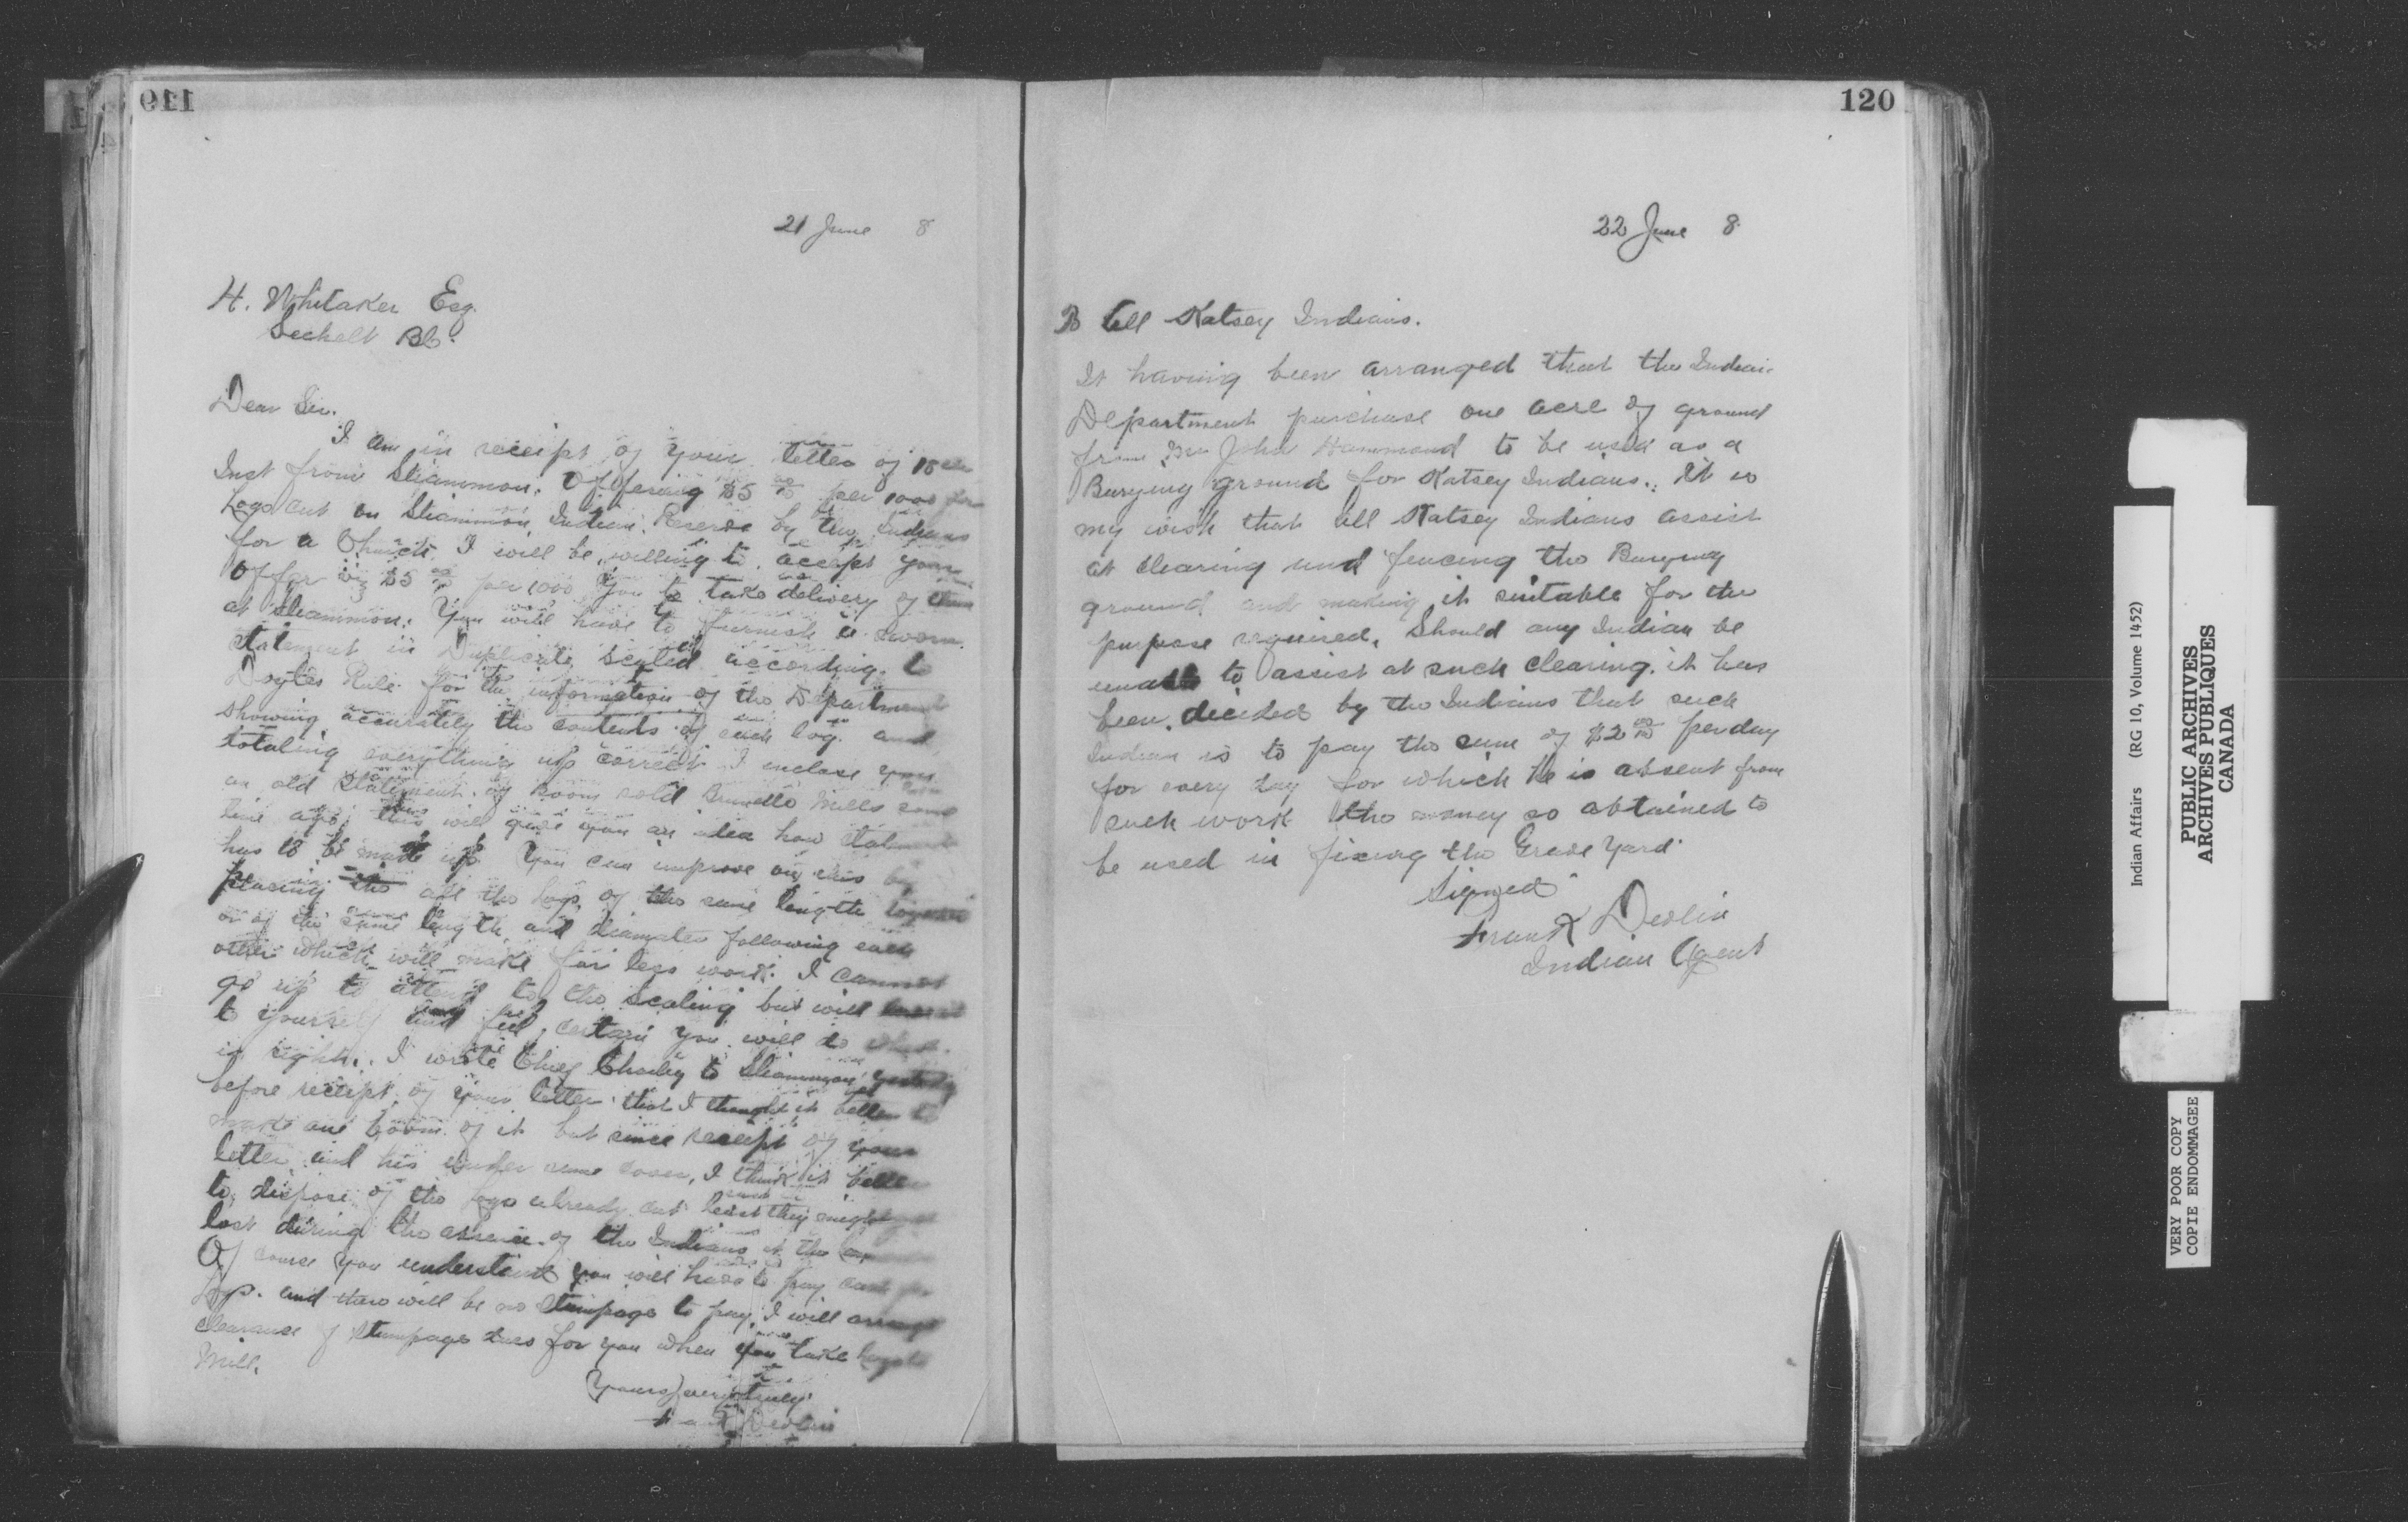 119
21 June 8
H. Whitaker Esq.
Sechelt BC.
Dear Sir.
I am in receipt of your letter of 18th
Inst from Sliammon. Offering $5 00/00 per 1000 for
Logs cut on Sliammon Indian Reserve by the Indians
for a Church. I will be willing to accept your
Offer viz $5 00/00 per 1000 you to take delivery of them
at Sliammon. You will have to furnish a sworn
statement in Duplicate scaled according to
Doyles Rule for the information of the Department
showing accurately the contents of each log and
totaling everything up correct I enclose you
an old statement of Boom sold Brunette Mills some
time ago, this will give you an idea how statement
has to be made up. You can improve on this by
placing the all the logs of the same length together
or of the same length and diameter following each
other which will make far less work. I cannot
go up to attend to the scaling but will leave it
to yourself and feel certain you will do what
is right. I wrote Chief Charley to Sliammon yesterday
before receipt of your letter that I thought it better to
make one boom of it but since receipt of your
letter and his under same cover, I think it better
to dispose of the logs already cut least they might get
lost during the absence of the Indians at the
Of course you understand you will have to pay cash for
Logs. and there will be no stumpage to pay. I will arrange
clearance of stumpage dues for you when you take logs to
Mill.
Yours very truly
Frank Devlin
120
22 June 8
To all Katsey Indians.
It having been arranged that the Indian
Department purchase one acre of ground
from Mr John Hammond to be used as a
Burying ground for Katsey Indians. It is
my wish that all Katsey Indians assist
at clearing and fencing the Burying
ground and making it suitable for the
purpose required. Should any Indian be
unable to assist at such clearing. it has
been decided by the Indians that such
Indian is to pay the sum of $2 00/00 per day
for every day for which he is absent from
such work the money so obtained to
be used in fixing the Grave Yard.
Signed
Frank Devlin
Indian Agent
Indian Affairs (RG 10, Volume 1452)
PUBLIC ARCHIVES
ARCHIVES PUBLIQUES
CANADA
VERY POOR COPY
COPIE ENDOMMAGEE